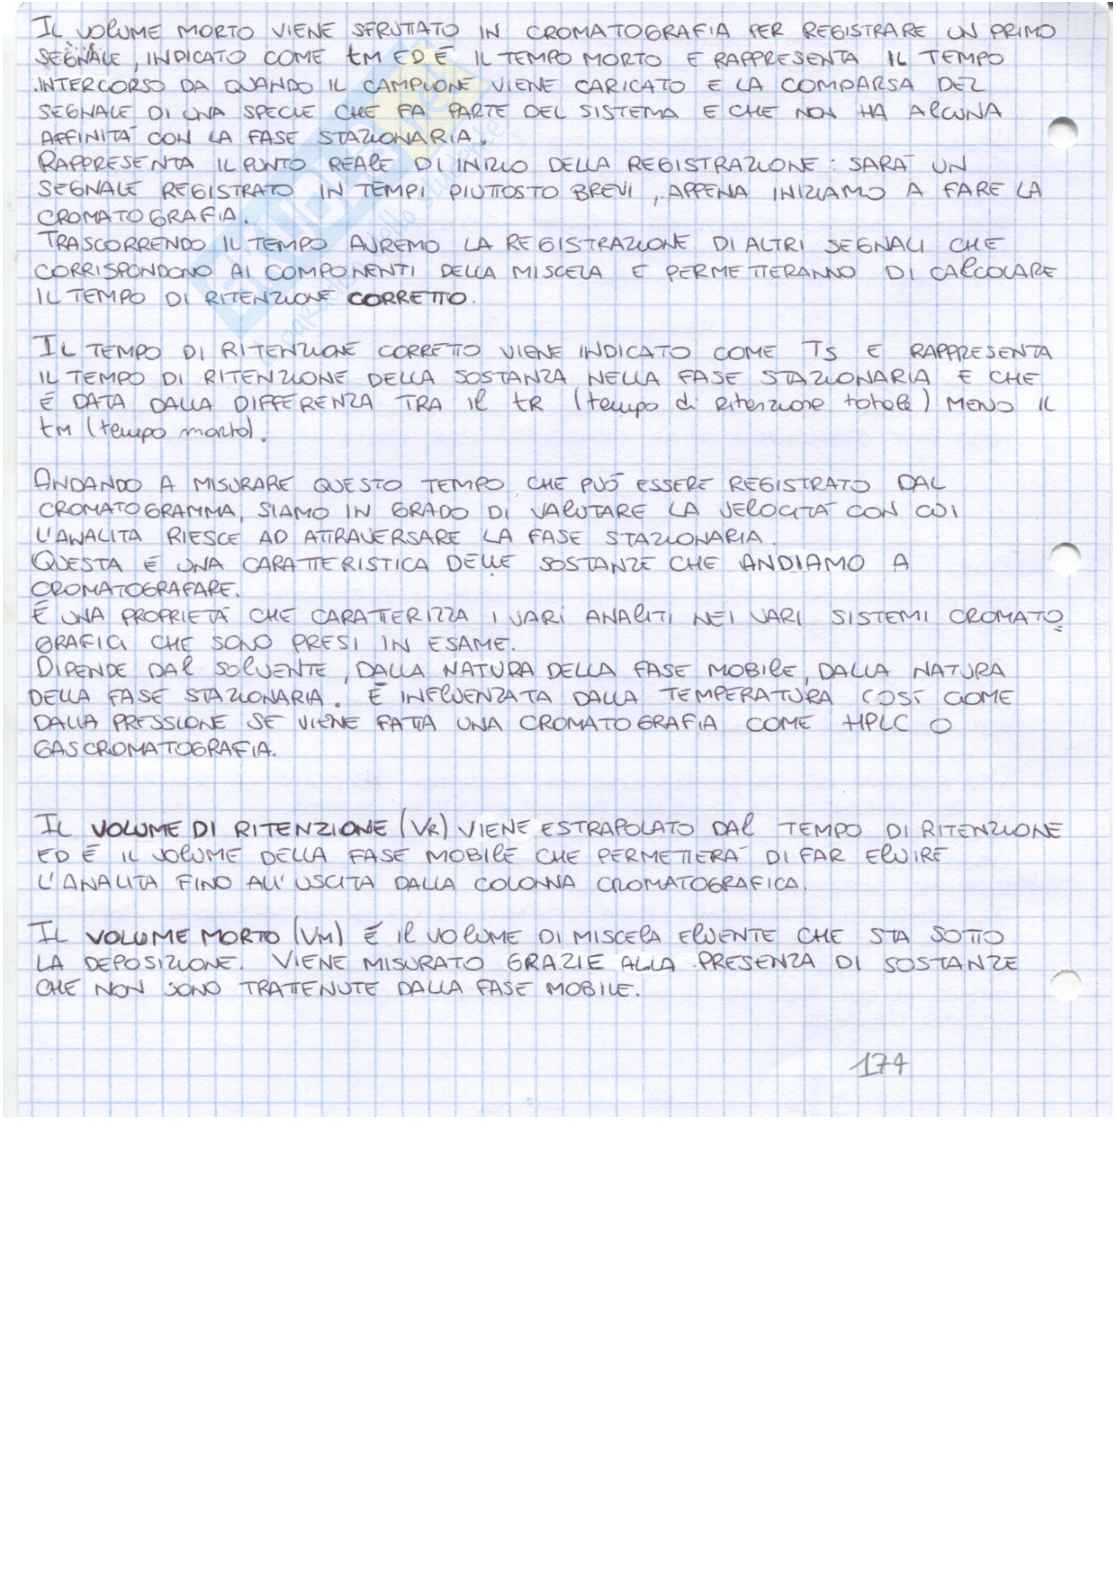 IL VOLUME MORTO VIENE SFRUTTATO IN CROMATOGRAFIA PER REGISTRARE UN PRIMO
SEGNALE, INDICATO COME tM ED È IL TEMPO MORTO E RAPPRESENTA IL TEMPO
INTERCORSO DA QUANDO IL CAMPIONE VIENE CARICATO E LA COMPARSA DEL
SEGNALE DI UNA SPECIE CHE FA PARTE DEL SISTEMA E CHE NON HA ALCUNA
AFFINITÀ CON LA FASE STAZIONARIA.
RAPPRESENTA IL PUNTO REALE DI INIZIO DELLA REGISTRAZIONE: SARÀ UN
SEGNALE REGISTRATO IN TEMPI PIUTTOSTO BREVI, APPENA INIZIAMO A FARE LA
CROMATOGRAFIA.
TRASCORRENDO IL TEMPO AVREMO LA REGISTRAZIONE DI ALTRI SEGNALI CHE
CORRISPONDONO AI COMPONENTI DELLA MISCELA E PERMETTERANNO DI CALCOLARE
IL TEMPO DI RITENZIONE CORRETTO.
IL TEMPO DI RITENZIONE CORRETTO VIENE INDICATO COME TS E RAPPRESENTA
IL TEMPO DI RITENZIONE DELLA SOSTANZA NELLA FASE STAZIONARIA E CHE
È DATA DALLA DIFFERENZA TRA IL tR (tempo di ritenzione totale) MENO IL
tM (tempo morto).
ANDANDO A MISURARE QUESTO TEMPO, CHE PUÒ ESSERE REGISTRATO DAL
CROMATOGRAMMA, SIAMO IN GRADO DI VALUTARE LA VELOCITÀ CON CUI
L'ANALITA RIESCE AD ATTRAVERSARE LA FASE STAZIONARIA.
QUESTA È UNA CARATTERISTICA DELLE SOSTANZE CHE ANDIAMO A
CROMATOGRAFARE.
È UNA PROPRIETÀ CHE CARATTERIZZA I VARI ANALITI NEI VARI SISTEMI CROMATO
GRAFICI CHE SONO PRESI IN ESAME.
DIPENDE DAL SOLVENTE, DALLA NATURA DELLA FASE MOBILE, DALLA NATURA
DELLA FASE STAZIONARIA. È INFLUENZATA DALLA TEMPERATURA COSÌ COME
DALLA PRESSIONE SE VIENE FATTA UNA CROMATOGRAFIA COME HPLC O
GASCROMATOGRAFIA.
IL VOLUME DI RITENZIONE (VR) VIENE ESTRAPOLATO DAL TEMPO DI RITENZIONE
ED È IL VOLUME DELLA FASE MOBILE CHE PERMETTERÀ DI FAR ELUIRE
L'ANALITA FINO ALL'USCITA DALLA COLONNA CROMATOGRAFICA.
IL VOLUME MORTO (VM) È IL VOLUME DI MISCELA ELUENTE CHE STA SOTTO
LA DEPOSIZIONE. VIENE MISURATO GRAZIE ALLA PRESENZA DI SOSTANZE
CHE NON SONO TRATTENUTE DALLA FASE MOBILE.
174